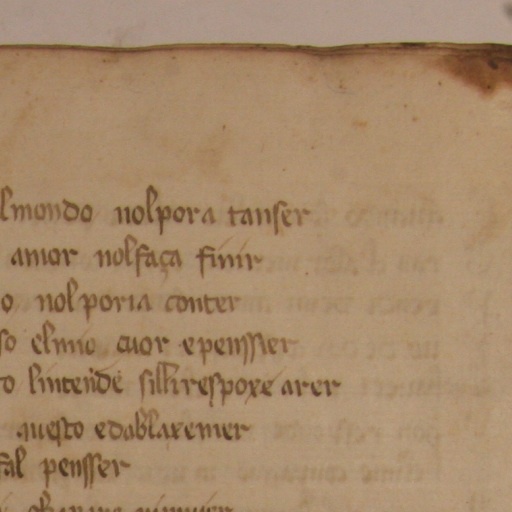 lmondo nolpora tanser
amor nolfaça finir
o nolporia conter
so elmio cuor epenssier
to lintende silli respoxe arer
questo edablaxemer
fal pensser